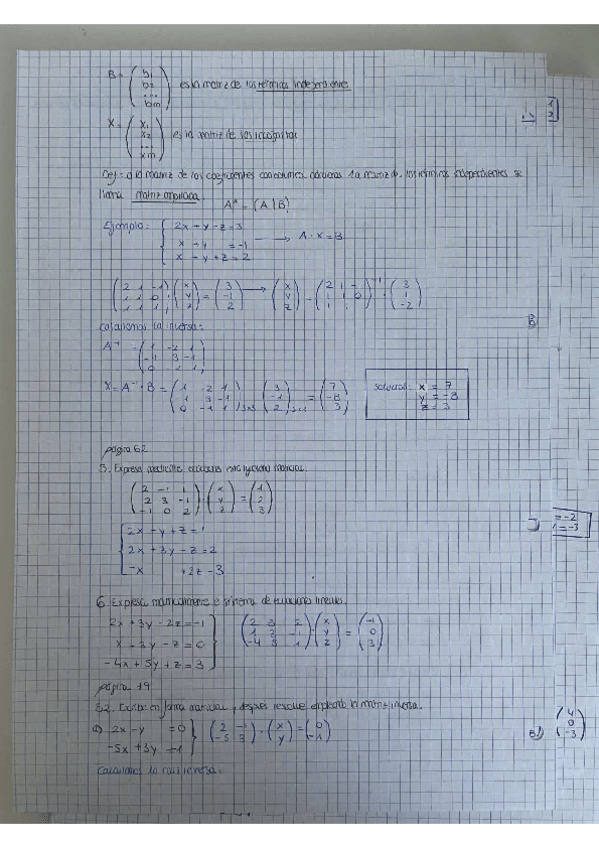 B = ( b1 b2 ... bm ) es la matriz de los términos independientes
X = ( x1 x2 ... xm ) es la matriz de las incógnitas
Def = a la matriz de los coeficientes con columna la matriz de los términos independientes se
llama matriz ampliada A* = (A | B)
Ejemplo: { 2x - y - z = 3
x - y = -1 → A · X = B
x - y + z = 2
( 2 1 -1 / 1 1 0 / 1 1 1 ) · ( x / y / z ) = ( 3 / -1 / 2 ) → ( x / y / z ) = ( 2 1 - / 1 1 0 / 1 1 )⁻¹ · ( 3 / 1 / -2 )
calculamos la inversa:
A⁻¹ = ( 1 -2 1 / -1 3 -1 / 0 -1 1 )
X = A⁻¹ · B = ( 1 -2 1 / 1 3 -1 / 0 -1 1 )3x3 · ( 3 / -1 / 2 )3x1 = ( 7 / -8 / 3 )
Solución: x = 7
y = -8
z = 3
página 62
5. Expresa
( 2 -1 1 / 2 3 -1 / -1 0 2 ) · ( x / y / z ) = ( 1 / 2 / 3 )
{ 2x - y + z = 1
2x + 3y - z = 2
-x + 2z - 3
6. Expresa matricialmente sistema de ecuaciones lineales.
2x + 3y - 2z = -1
x - 3y - z = 0
-4x + 5y + z = 3
( 2 3 2 / 1 3 -1 / -4 5 1 ) · ( x / y / z ) = ( -1 / 0 / 3 )
página 79
52. en forma matricial y después resuelve empleando la matriz inversa.
a) 2x - y = 0
-5x + 3y = 1
( 2 -1 / -5 3 ) · ( x / y ) = ( 0 / -1 )
Calculamos la inversa.
B
= -2
= -3
B) ( 4 / 0 / -3 )